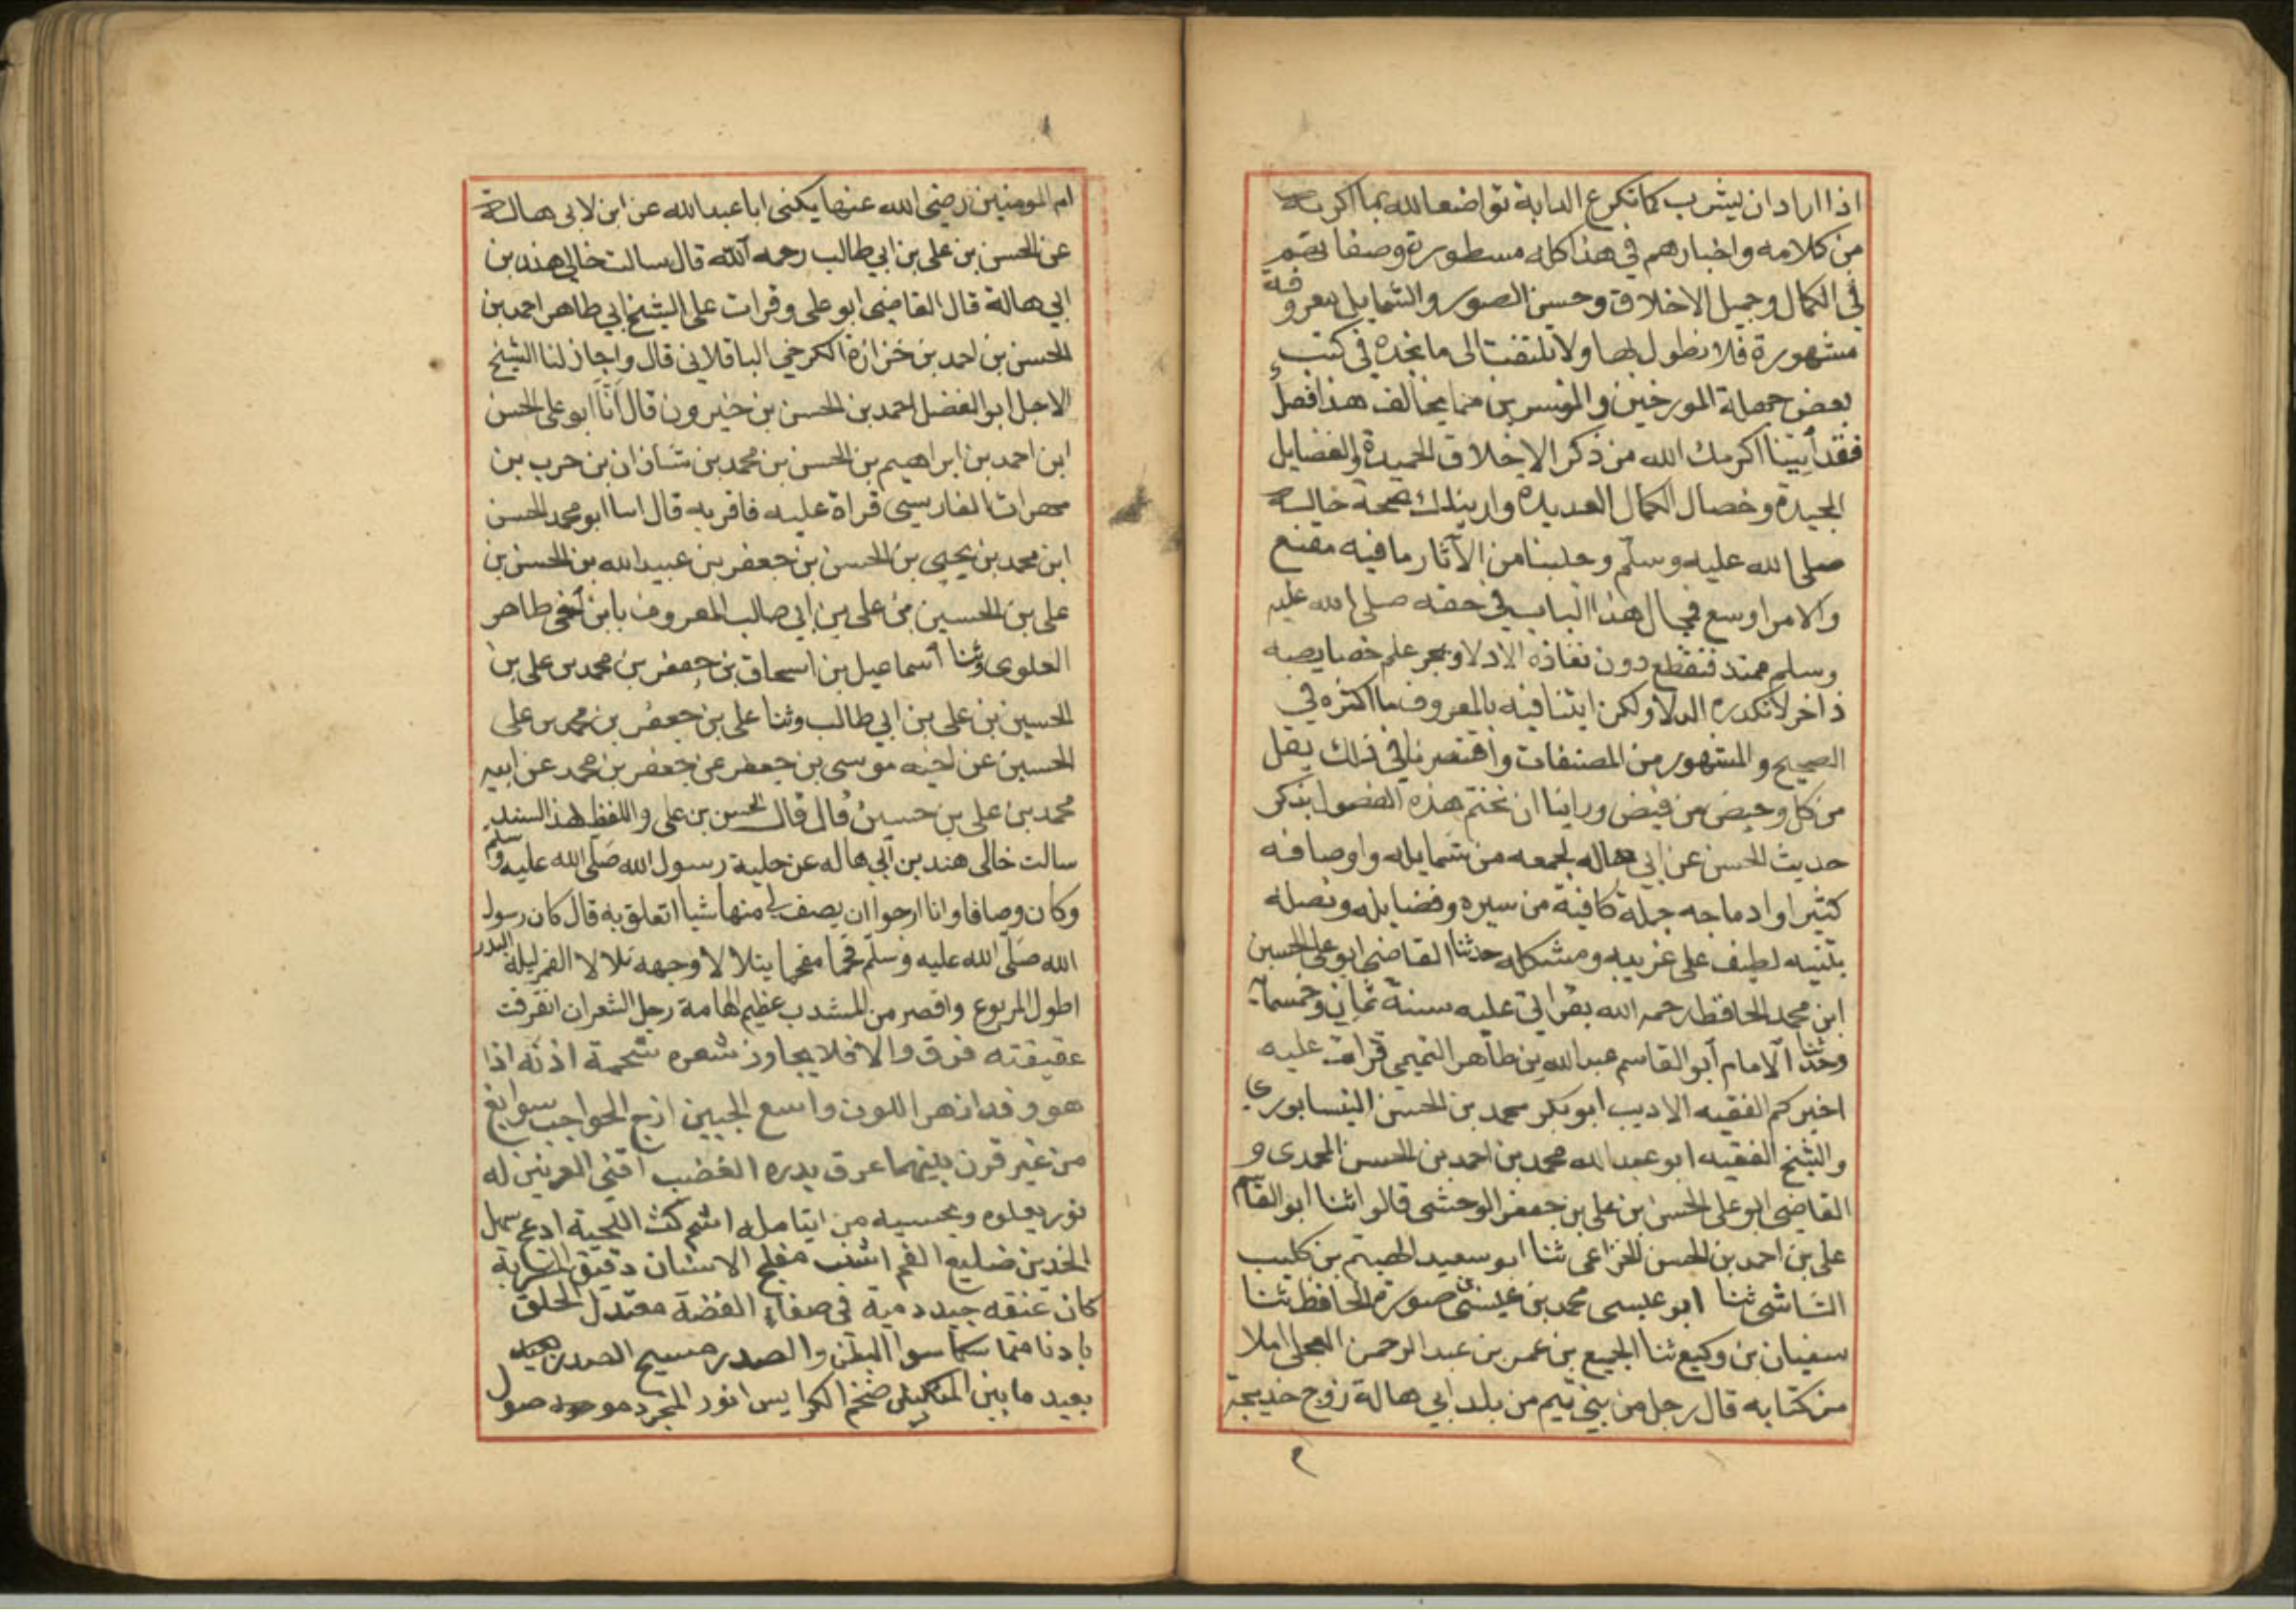 اذا اراد ان يشرب كما تكرع الدابة تواضعا لله بما اكرمه
من كلامه واخبارهم في هذا كله مسطورة وصفاتهم
في الكمال وجميل الاخلاق وحسن الصور والشمايل معروفة
مشهورة فلا نطول بها ولا تلتفت الى ما تجده في كتب
بعض جهلة المورخين والمفسرين مما يخالف هذا فصل
فقد أتينا اكرمك الله من ذكر الاخلاق الحميدة والفضايل
المجيدة وخصال الكمال العديدة واريناك صحة
صلى الله عليه وسلم وجلبنا من الآثار ما فيه مقنع
والامر اوسع فمجال هذا الباب في حقه صلى الله عليه
وسلم ممتد فنقطع دون نفاذه الادلا وبحر علم خصايصه
ذاخر لا تكدره الدلا ولكن اتينا فيه بالمعروف مما اكثره في
الصحيح والمشهور من المصنفات واقتصرنا في ذلك بقل
من كل وحيض من فيض وراينا ان نختم هذه الفصول بذكر
حديث الحسن عن ابي هاله لجمعه من شمايله واوصافه
كثيرا وادماجه جملة كافية من سيره وفضايله ونصله
بتنبيه لطيف على غريبه ومشكله حدثنا القاضي ابو على الحسين
ابن محمد الحافظ رحمه الله بقراتي عليه سنة ثمان وخمسمائة
وحدثنا الامام أبو القاسم عبد الله بن طاهر التميمي قرات عليه
اخبركم الفقيه الاديب ابو بكر محمد بن الحسن النيسابوري
والشيخ الفقيه ابو عبد الله محمد بن احمد بن الحسن المحمدي و
القاضي ابو على الحسن بن على بن جعفر الوحشى قالوا ثنا ابو القاسم
على بن احمد بن الحسن الخزاعى ثنا ابو سعيد الهيثم بن كليب
الشاشى ثنا ابو عيسى محمد بن عيسى صورة الحافظ ثنا
سفيان بن وكيع ثنا الجميع بن عمر بن عبد الرحمن العجلى املا
من كتابه قال رجل من بني تيم من بلد ابي هالة زوج خديجة
ام المومنين رضي الله عنها يكنى ابا عبد الله عن ابن لابي هالة
عن الحسن بن على بن ابي طالب رحمه الله قال سالت خالي هند بن
ابي هالة قال القاضي ابو على وقرات على الشيخ ابي طاهر احمد بن
الحسن بن احمد بن خزازة الكرخي الباقلاني قال واجاز لنا الشيخ
الاجل ابو الفضل احمد بن الحسن بن خيرون قال أنا ابو على الحسن
ابن احمد بن ابراهيم بن الحسن بن محمد بن شاذان بن حرب بن
مهرات الفارسي قراة عليه فاقر به قال انا ابو محمد الحسن
ابن محمد بن يحيى بن الحسن بن جعفر بن عبيد الله بن الحسن بن
على بن الحسين بن على بن ابي طالب المعروف بابن أخي طاهر
العلوى وثنا اسماعيل بن اسحاق بن جعفر بن محمد بن على بن
الحسين بن على بن ابي طالب وثنا على بن جعفر بن محمد بن على
الحسين عن اخيه موسى بن جعفر عن جعفر بن محمد عن ابيه
محمد بن على بن حسين قال قال الحسن بن على واللفظ لهذا السند
سالت خالى هند بن ابي هاله عن حلية رسول الله صلى الله عليه وسلم
وكان وصافا وانا ارجوا ان يصف لي منها شيا اتعلق به قال كان رسول
الله صلى الله عليه وسلم فخما مفخما يتلالا وجهه تلالا القمر ليلة البدر
اطول المربوع واقصر من المشذب عظيم الهامة رجل الشعر ان انفرقت
عقيقته فرق والا فلا يجاوز شعره شحمة اذنه اذا
هو وفر ازهر اللون واسع الجبين ازج الحواجب سوابغ
من غير قرن بينهما عرق يدره الغضب اقنى العرنين له
نور يعلوه ويحسبه من يتامله اشم كث اللحية ادعج سهل
الخدين ضليع الفم اشنب مفلج الاسنان دقيق المسربة
كان عنقه جيد دمية في صفاء الفضة معتدل الخلق
بادنا متماسكا سوا البطن والصدر مسيح الصدر بعيد
بعيد ما بين المنكبين ضخم الكراديس انور المتجرد موصول